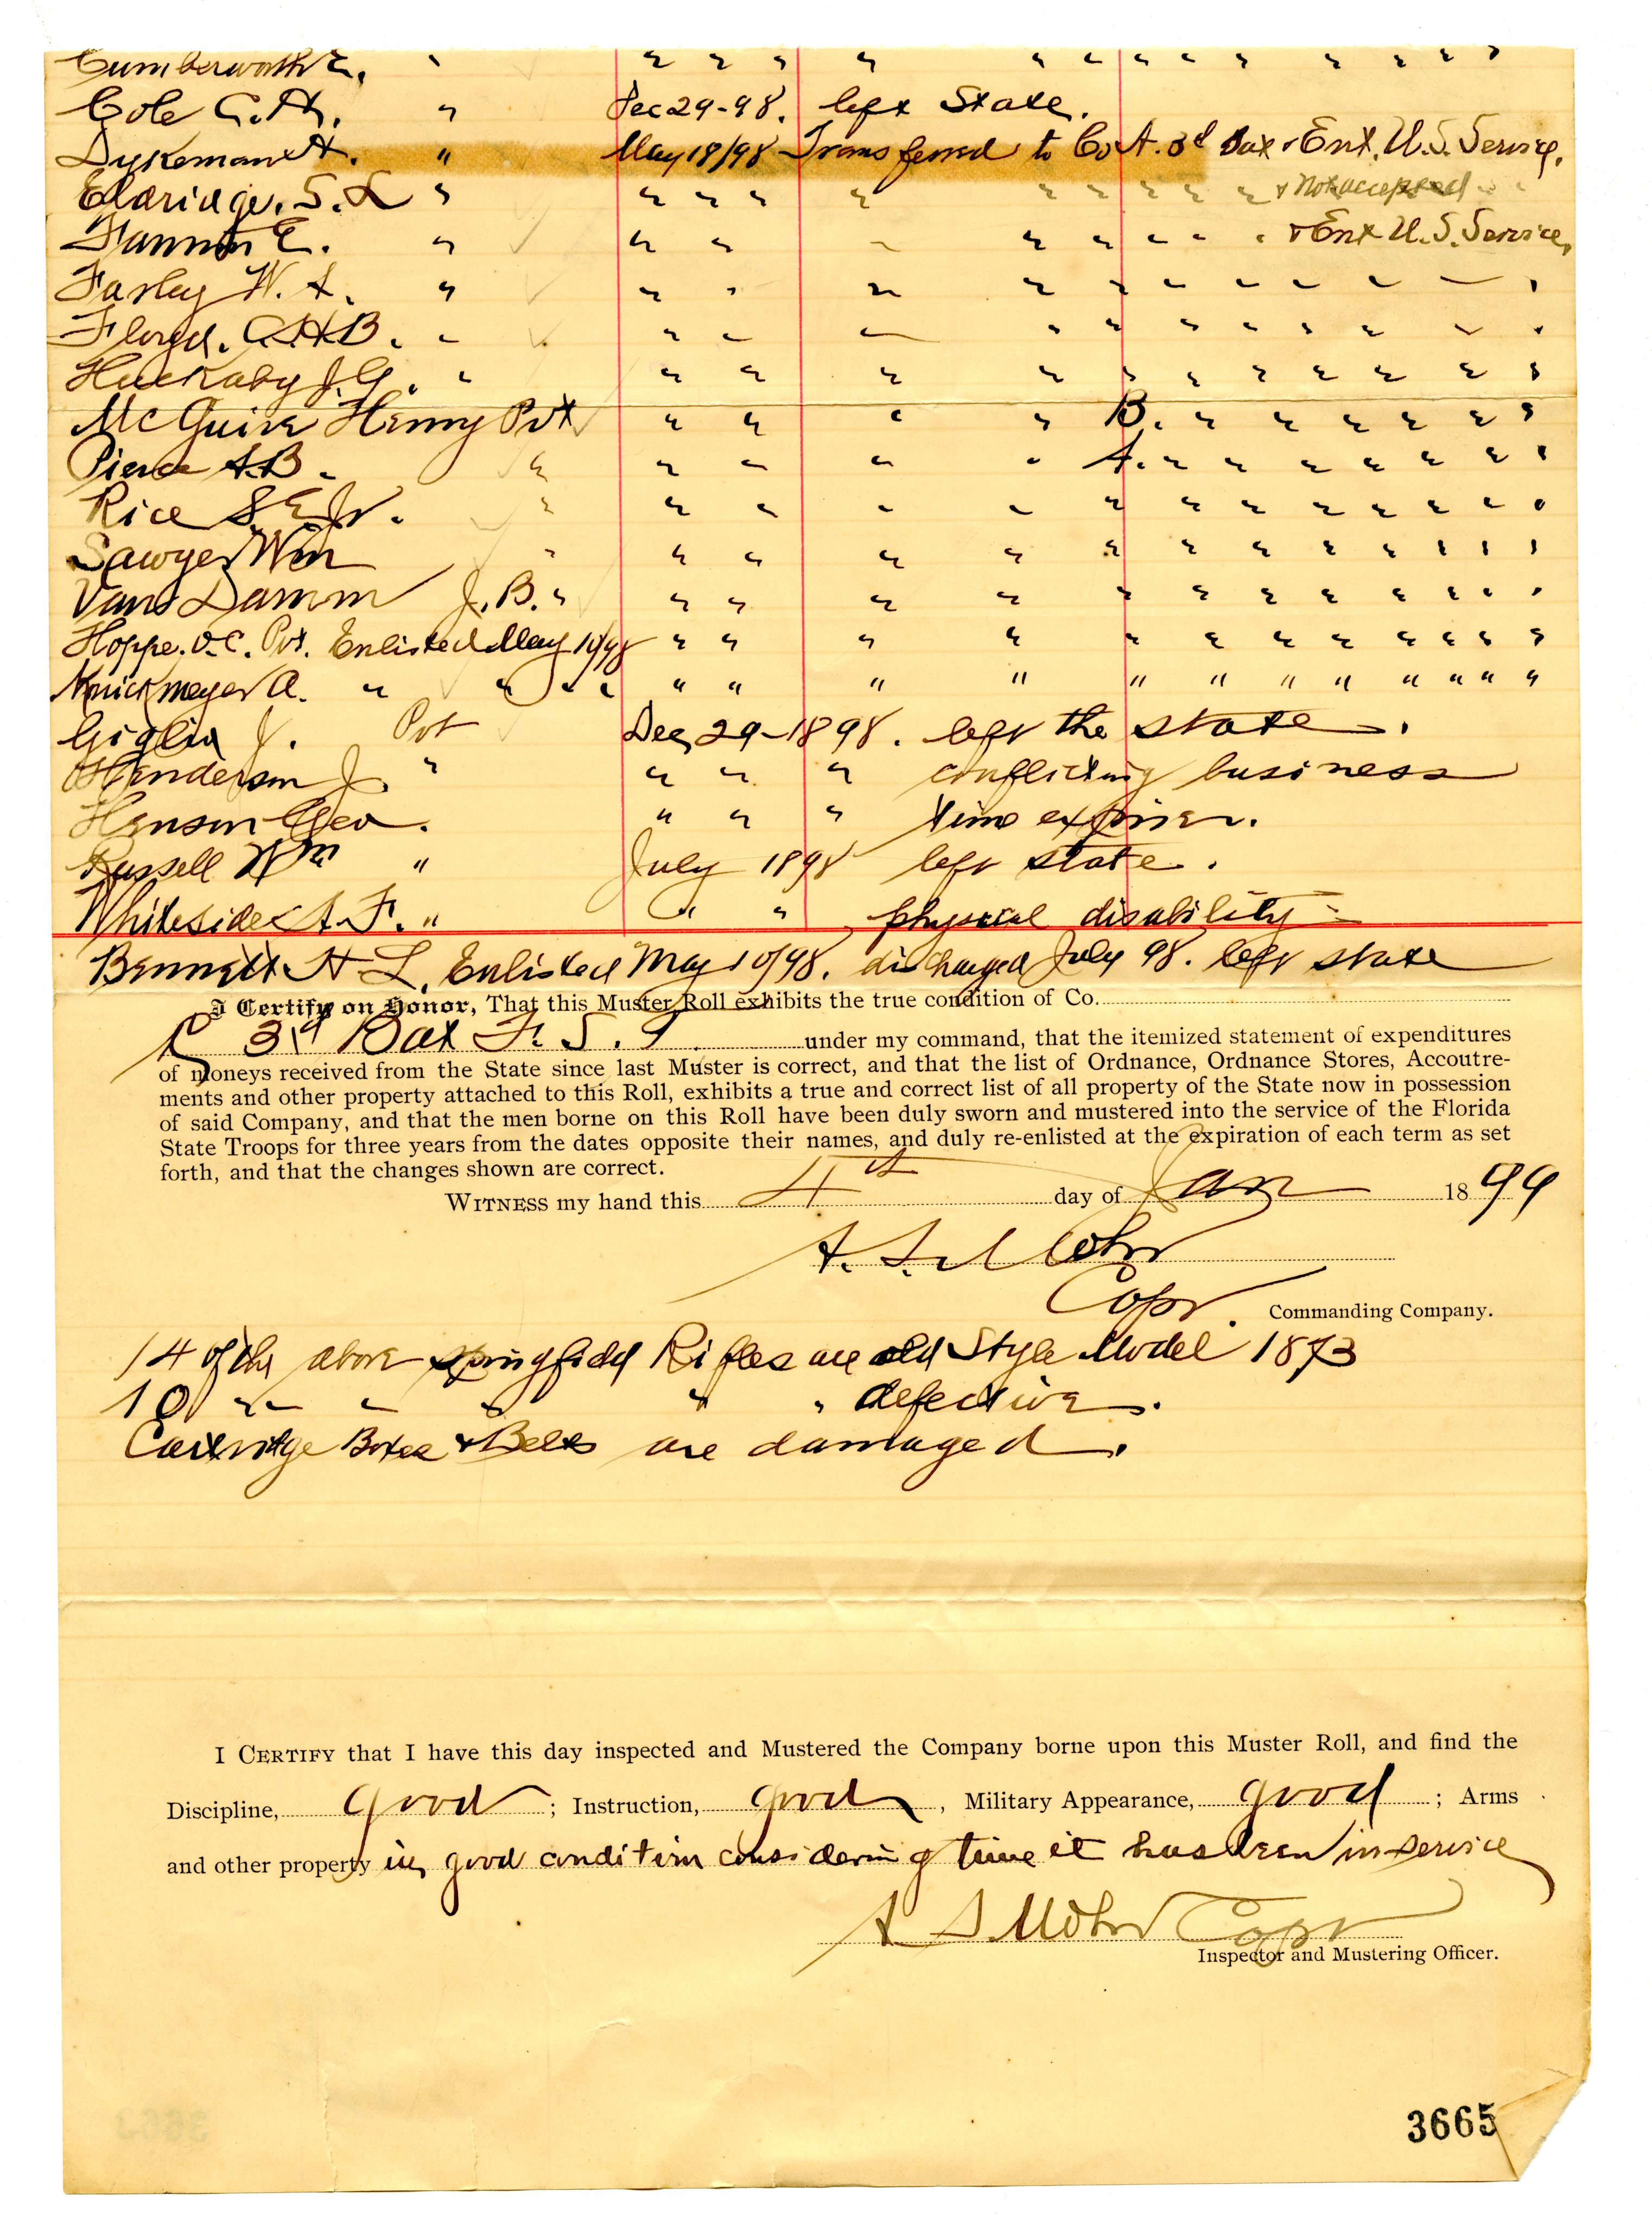 Cumberworth E. " " " " " " " " " " " " " "
Cole C. A. " Dec 29-98. left State.
Dykeman A. " May 18/98 Transferred to Co A. 3d Bat & Ent. U.S. Service.
Eldridge. S. L " " " " " " " " " " & Not accepted
Fannin E. " " " " " " " " " & Ent U.S. Service,
Farley W. A. " " " " " " " " " " " "
Floyd. " " " " " " " " " " " "
Huckaby J. G. " " " " " " " " " " " "
McGuire Henry Pvt " " " " B. " " " " " "
Pierce A. B. " " " " " A. " " " " " "
Rice S. E. Jr. " " " " " " " " " " " " "
Sawyer Wm " " " " " " " " " " " " "
Van Damm J. B. " " " " " " " " " " " " "
Hoppe. O. C. Pvt. Enlisted May 10/98 " " " " " " " " " " " "
Knickmeyer A. " " " " " " " " " " " " " " " "
Giglia J. Pvt Dec 29-1898. left the state.
Henderson J. " " " " conflicting business
Henson Geo. " " " time expired.
Russell Wm " July 1898 left state.
Whitesides A. F. " " " physical disability
Bennett H L. Enlisted May 10/98. discharged July 98. left state
I Certify on Honor, That this Muster Roll exhibits the true condition of Co.
3rd Bat F. S. T. under my command, that the itemized statement of expenditures
of moneys received from the State since last Muster is correct, and that the list of Ordnance, Ordnance Stores, Accoutre-
ments and other property attached to this Roll, exhibits a true and correct list of all property of the State now in possession
of said Company, and that the men borne on this Roll have been duly sworn and mustered into the service of the Florida
State Troops for three years from the dates opposite their names, and duly re-enlisted at the expiration of each term as set
forth, and that the changes shown are correct.
WITNESS my hand this 4th day of Jan 1899
A. S. Mohr
Capt. Commanding Company.
14 of the above Springfield Rifles are old Style Model 1873
10 " " " " " defective.
Cartridge Boxes & Belts are damaged.
I CERTIFY that I have this day inspected and Mustered the Company borne upon this Muster Roll, and find the
Discipline, good ; Instruction, good , Military Appearance, good ; Arms
and other property in good condition considering time it has been in service
A S. Mohr Capt
Inspector and Mustering Officer.
3665